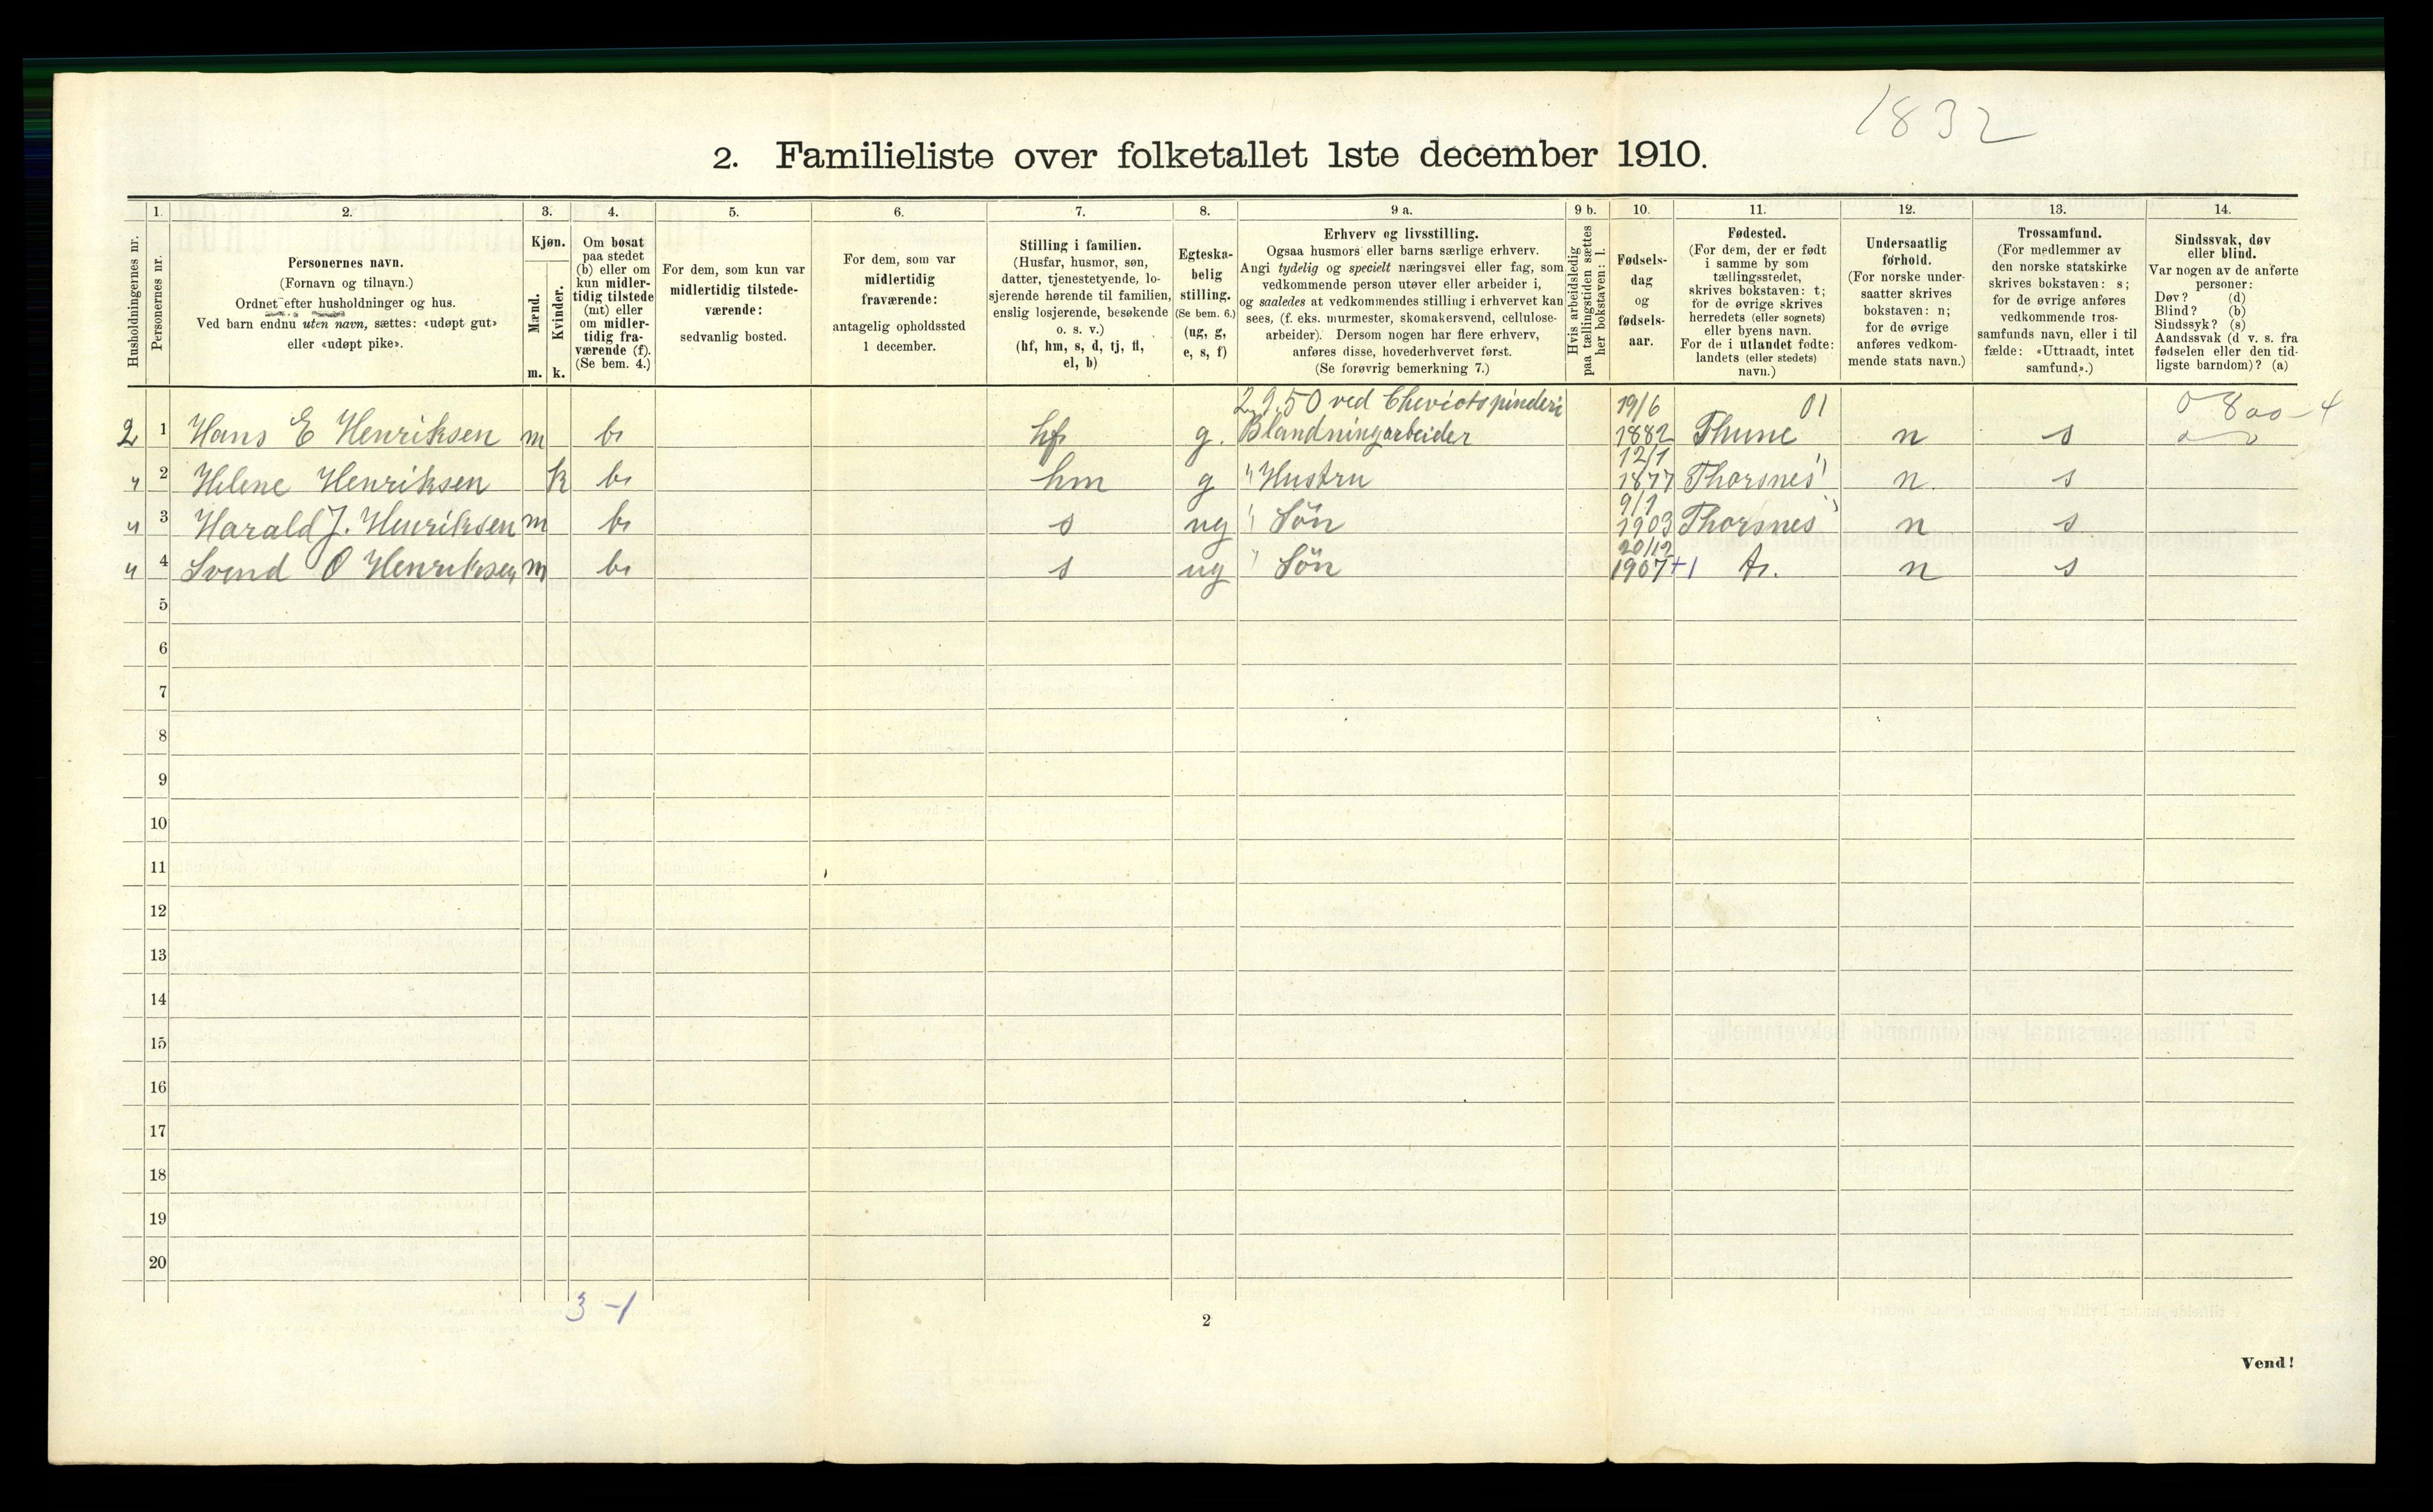 1832
2. Familieliste over folketallet 1ste december 1910.
1. 2. 3. 4. 5. 6. 7. 8. 9 a. 9 b. 10. 11. 12. 13. 14.
Husholdningernes nr.
Personernes nr.
Personernes navn.
(Fornavn og tilnavn.)
Ordnet efter husholdninger og hus.
Ved barn endnu uten navn, sættes: «udøpt gut»
eller «udøpt pike».
Kjøn.
Mænd.
Kvinder.
m. k.
Om bosat
paa stedet
(b) eller om
kun midler-
tidig tilstede
(mt) eller
om midler-
tidig fra-
værende (f).
(Se bem. 4.)
For dem, som kun var
midlertidig tilstede-
værende:
sedvanlig bosted.
For dem, som var
midlertidig
fraværende:
antagelig opholdssted
1 december.
Stilling i familien.
(Husfar, husmor, søn,
datter, tjenestetyende, lo-
sjerende hørende til familien,
enslig losjerende, besøkende
o. s. v.)
(hf, hm, s, d, tj, fl,
el, b)
Egteska-
belig
stilling.
(Se bem. 6.)
(ug, g,
e, s, f)
Erhverv og livsstilling.
Ogsaa husmors eller barns særlige erhverv.
Angi tydelig og specielt næringsvei eller fag, som
vedkommende person utøver eller arbeider i,
og saaledes at vedkommendes stilling i erhvervet kan
sees, (f. eks. murmester, skomakersvend, cellulose-
arbeider). Dersom nogen har flere erhverv,
anføres disse, hovederhvervet først.
(Se forøvrig bemerkning 7.)
Hvis arbeidsledig
paa tællingstiden sættes
her bokstaven: l.
Fødsels-
dag
og
fødsels-
aar.
Fødested.
(For dem, der er født
i samme by som
tællingsstedet,
skrives bokstaven: t;
for de øvrige skrives
herredets (eller sognets)
eller byens navn.
For de i utlandet fødte:
landets (eller stedets)
navn.)
Undersaatlig
forhold.
(For norske under-
saatter skrives
bokstaven: n;
for de øvrige
anføres vedkom-
mende stats navn.)
Trossamfund.
(For medlemmer av
den norske statskirke
skrives bokstaven: s;
for de øvrige anføres
vedkommende tros-
samfunds navn, eller i til
fælde: «Uttraadt, intet
samfund».)
Sindssvak, døv
eller blind.
Var nogen av de anførte
personer:
Døv? (d)
Blind? (b)
Sindssyk? (s)
Aandssvak (d v. s. fra
fødselen eller den tid-
ligste barndom)? (a)
ved Cheviotspinderi 19/6 01
2 1 Hans E Henriksen m b hf g. Blandningarbeider 1882 Thune n s
12/1
" 2 Helene Henriksen k b hm g " Hustru 1877 Thorsnes n. s
9/1
" 3 Harald J. Henriksen m b s ug " Søn 1903 Thorsnes n s
20/12
" 4 Svend O Henriksen m b s ug " Søn 1907 +1 n s
5
6
7
8
9
10
11
12
13
14
15
16
17
18
19
20
3 - 1
2
Vend!